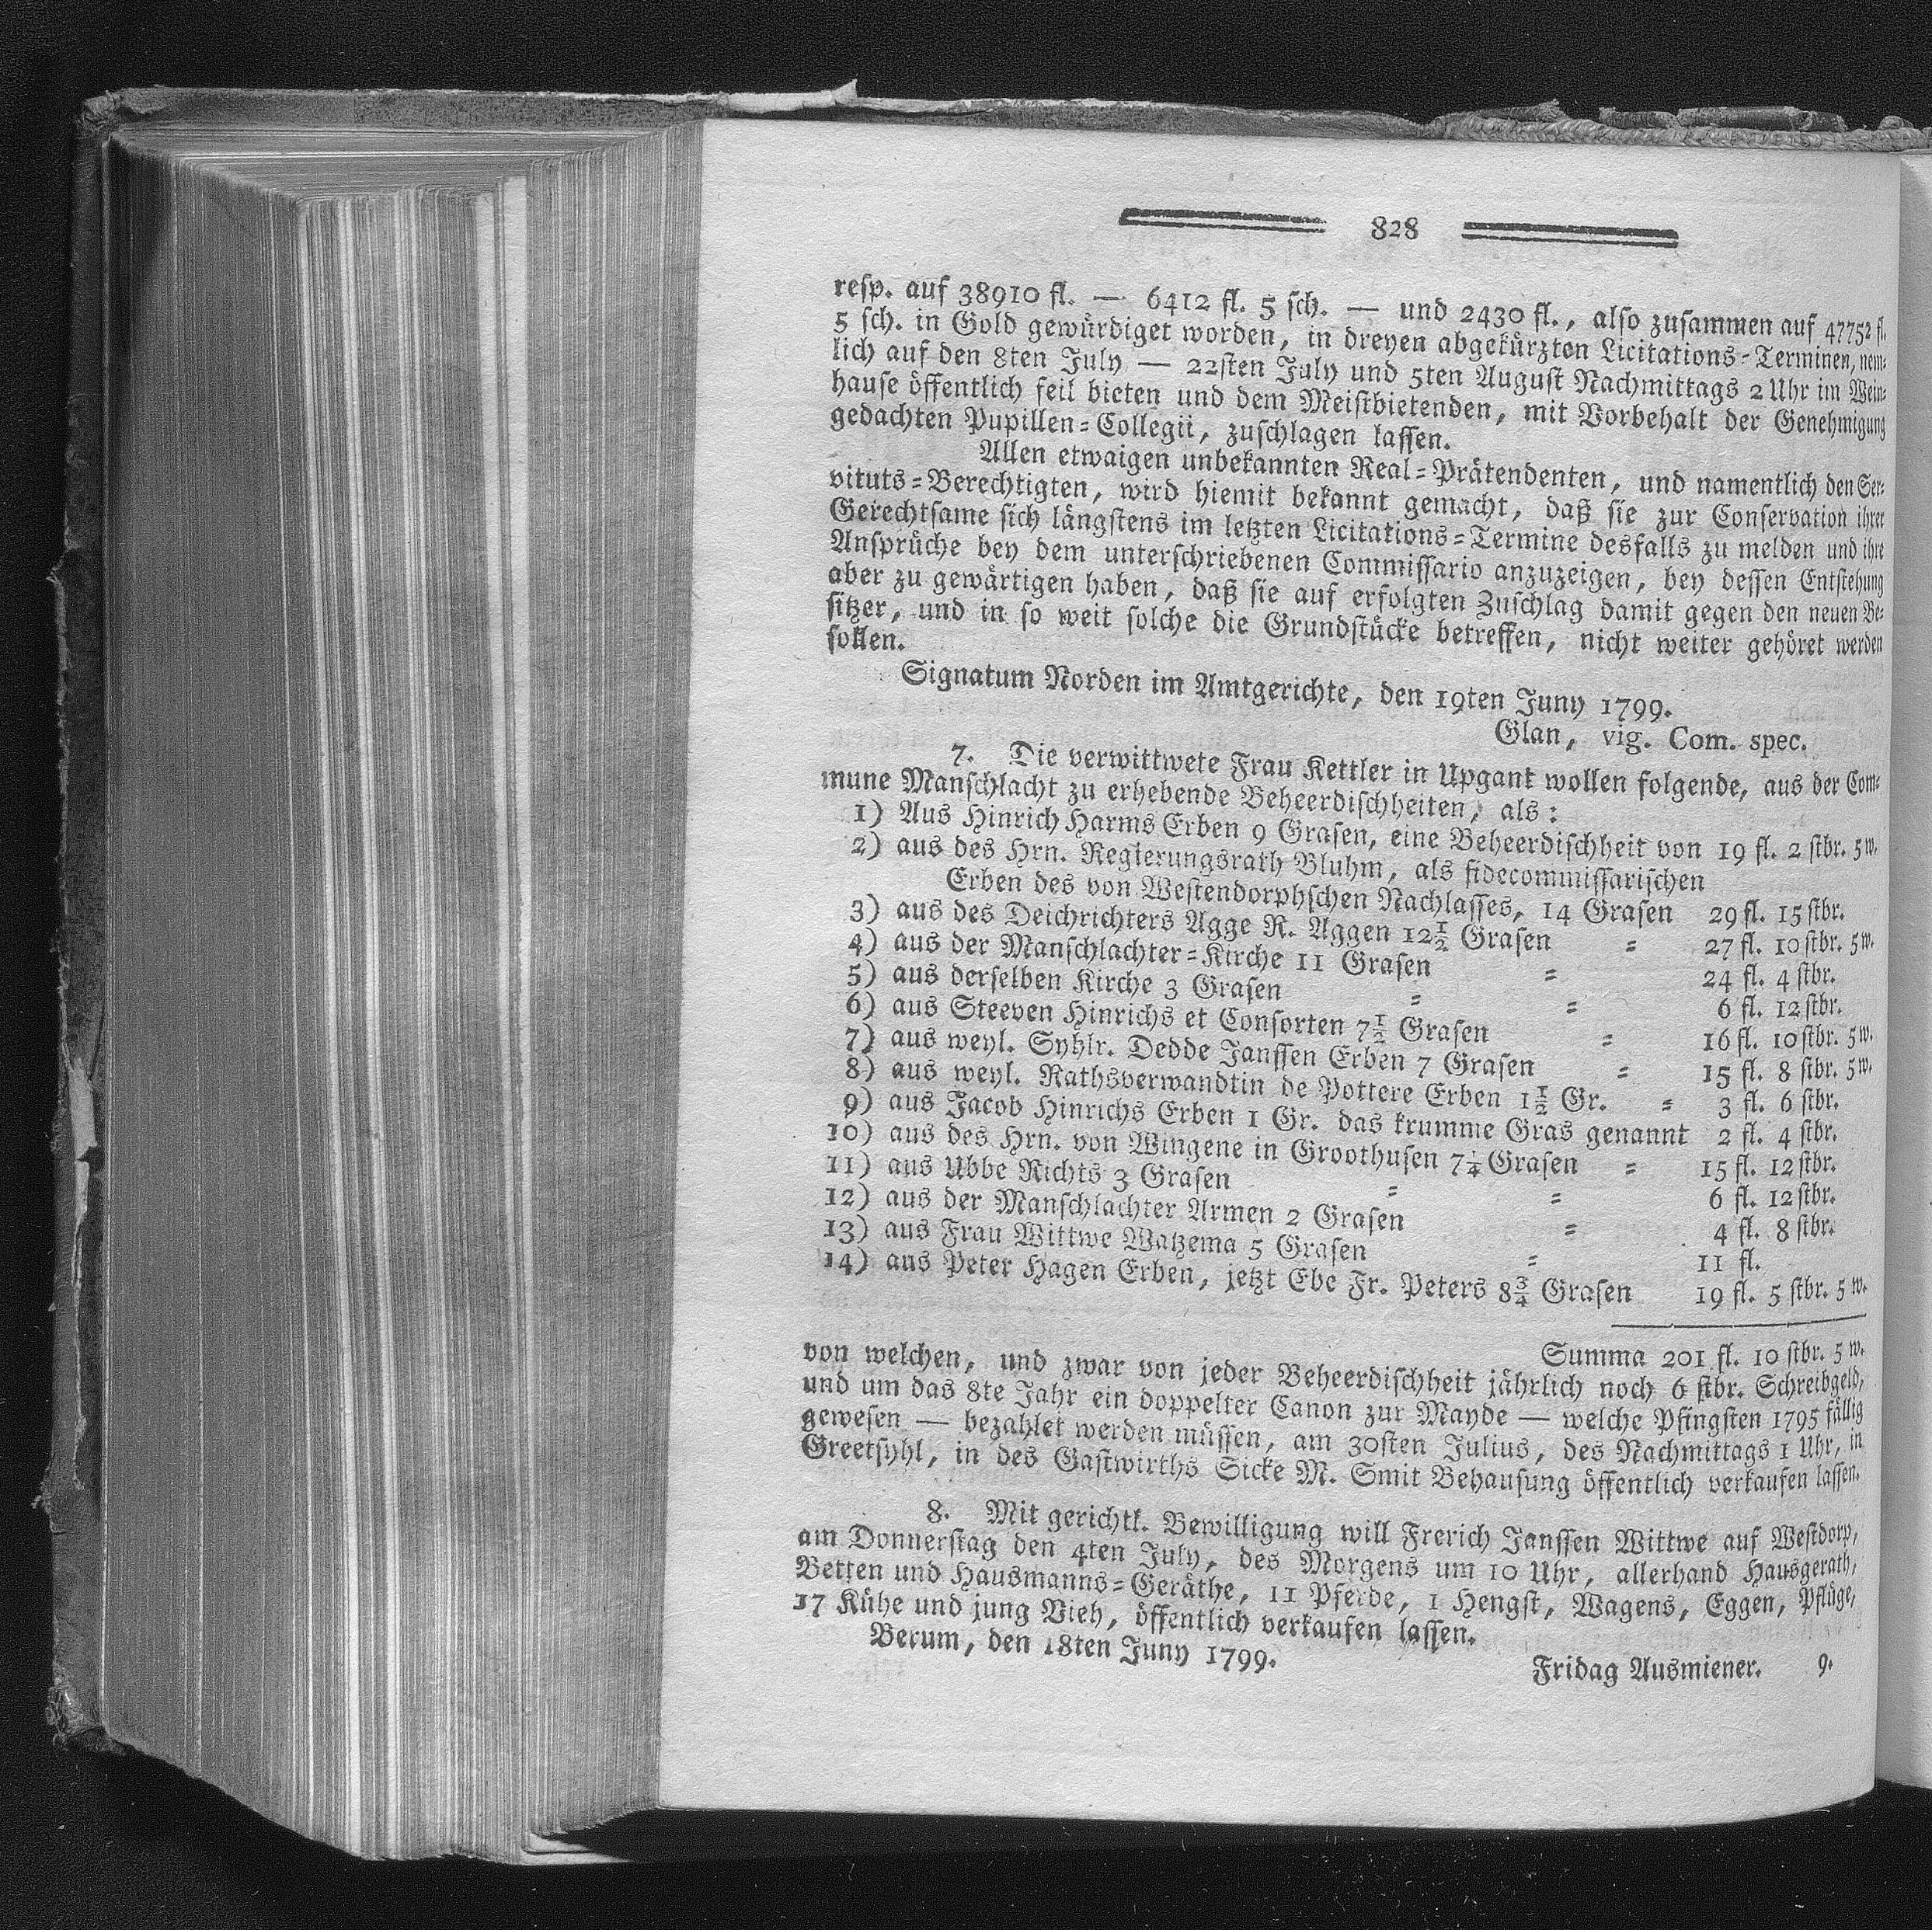 828
resp. auf 38910 fl. — 6412 fl. 5 sch. — und 2430 fl., also zusammen auf 47752 fl.
5 sch. in Gold gewürdiget worden, in dreyen abgekürzten Licitations-Terminen, nem-
lich auf den 8ten July — 22sten July und 5ten August Nachmittags 2 Uhr im Wein-
hause öffentlich feil bieten und dem Meistbietenden, mit Vorbehalt der Genehmigung
gedachten Pupillen-Collegii, zuschlagen lassen.
Allen etwaigen unbekannten Real-Prätendenten, und namentlich den Ser-
vituts-Berechtigten, wird hiemit bekannt gemacht, daß sie zur Conservation ihrer
Gerechtsame sich längstens im letzten Licitations-Termine desfalls zu melden und ihre
Ansprüche bey dem unterschriebenen Commissario anzuzeigen, bey dessen Entstehung
aber zu gewärtigen haben, daß sie auf erfolgten Zuschlag damit gegen den neuen Be-
sitzer, und in so weit solche die Grundstücke betreffen, nicht weiter gehöret werden
sollen.
Signatum Norden im Amtgerichte, den 19ten Juny 1799.
Glan, vig. Com. spec.
7. Die verwittwete Frau Kettler in Upgant wollen folgende, aus der Com-
mune Manschlacht zu erhebende Beheerdischheiten, als:
1) Aus Hinrich Harms Erben 9 Grasen, eine Beheerdischheit von 19 fl. 2 stbr. 5 w.
2) aus des Hrn. Regierungsrath Bluhm, als fidecommissarischen
Erben des von Westendorphschen Nachlasses, 14 Grasen 29 fl. 15 stbr.
3) aus des Deichrichters Agge R. Aggen 12½ Grasen = 27 fl. 10 stbr. 5 w.
4) aus der Manschlachter-Kirche 11 Grasen = 24 fl. 4 stbr.
5) aus derselben Kirche 3 Grasen = = 6 fl. 12 stbr.
6) aus Steeven Hinrichs et Consorten 7½ Grasen = 16 fl. 10 stbr. 5 w.
7) aus weyl. Syhlr. Dedde Janssen Erben 7 Grasen = 15 fl. 8 stbr. 5 w.
8) aus weyl. Rathsverwandtin de Pottere Erben 1½ Gr. = 3 fl. 6 stbr.
9) aus Jacob Hinrichs Erben 1 Gr. das krumme Gras genannt 2 fl. 4 stbr.
10) aus des Hrn. von Wingene in Groothusen 7¼ Grasen = 15 fl. 12 stbr.
11) aus Ubbe Richts 3 Grasen = = 6 fl. 12 stbr.
12) aus der Manschlachter Armen 2 Grasen = 4 fl. 8 stbr.
13) aus Frau Wittwe Watzema 5 Grasen = 11 fl.
14) aus Peter Hagen Erben, jetzt Ebe Fr. Peters 8¾ Grasen 19 fl. 5 stbr. 5 w.
Summa 201 fl. 10 stbr. 5 w.
von welchen, und zwar von jeder Beheerdischheit jährlich noch 6 stbr. Schreibgeld,
und um das 8te Jahr ein doppelter Canon zur Mayde — welche Pfingsten 1795 fällig
gewesen — bezahlet werden müssen, am 30sten Julius, des Nachmittags 1 Uhr, in
Greetsyhl, in des Gastwirths Sicke M. Smit Behausung öffentlich verkaufen lassen.
8. Mit gerichtl. Bewilligung will Frerich Janssen Wittwe auf Westdorp,
am Donnerstag den 4ten July, des Morgens um 10 Uhr, allerhand Hausgerath,
Betten und Hausmanns-Geräthe, 11 Pferde, 1 Hengst, Wagens, Eggen, Pflüge,
17 Kühe und jung Vieh, öffentlich verkaufen lassen.
Berum, den 18ten Juny 1799.
Fridag Ausmiener. 9.